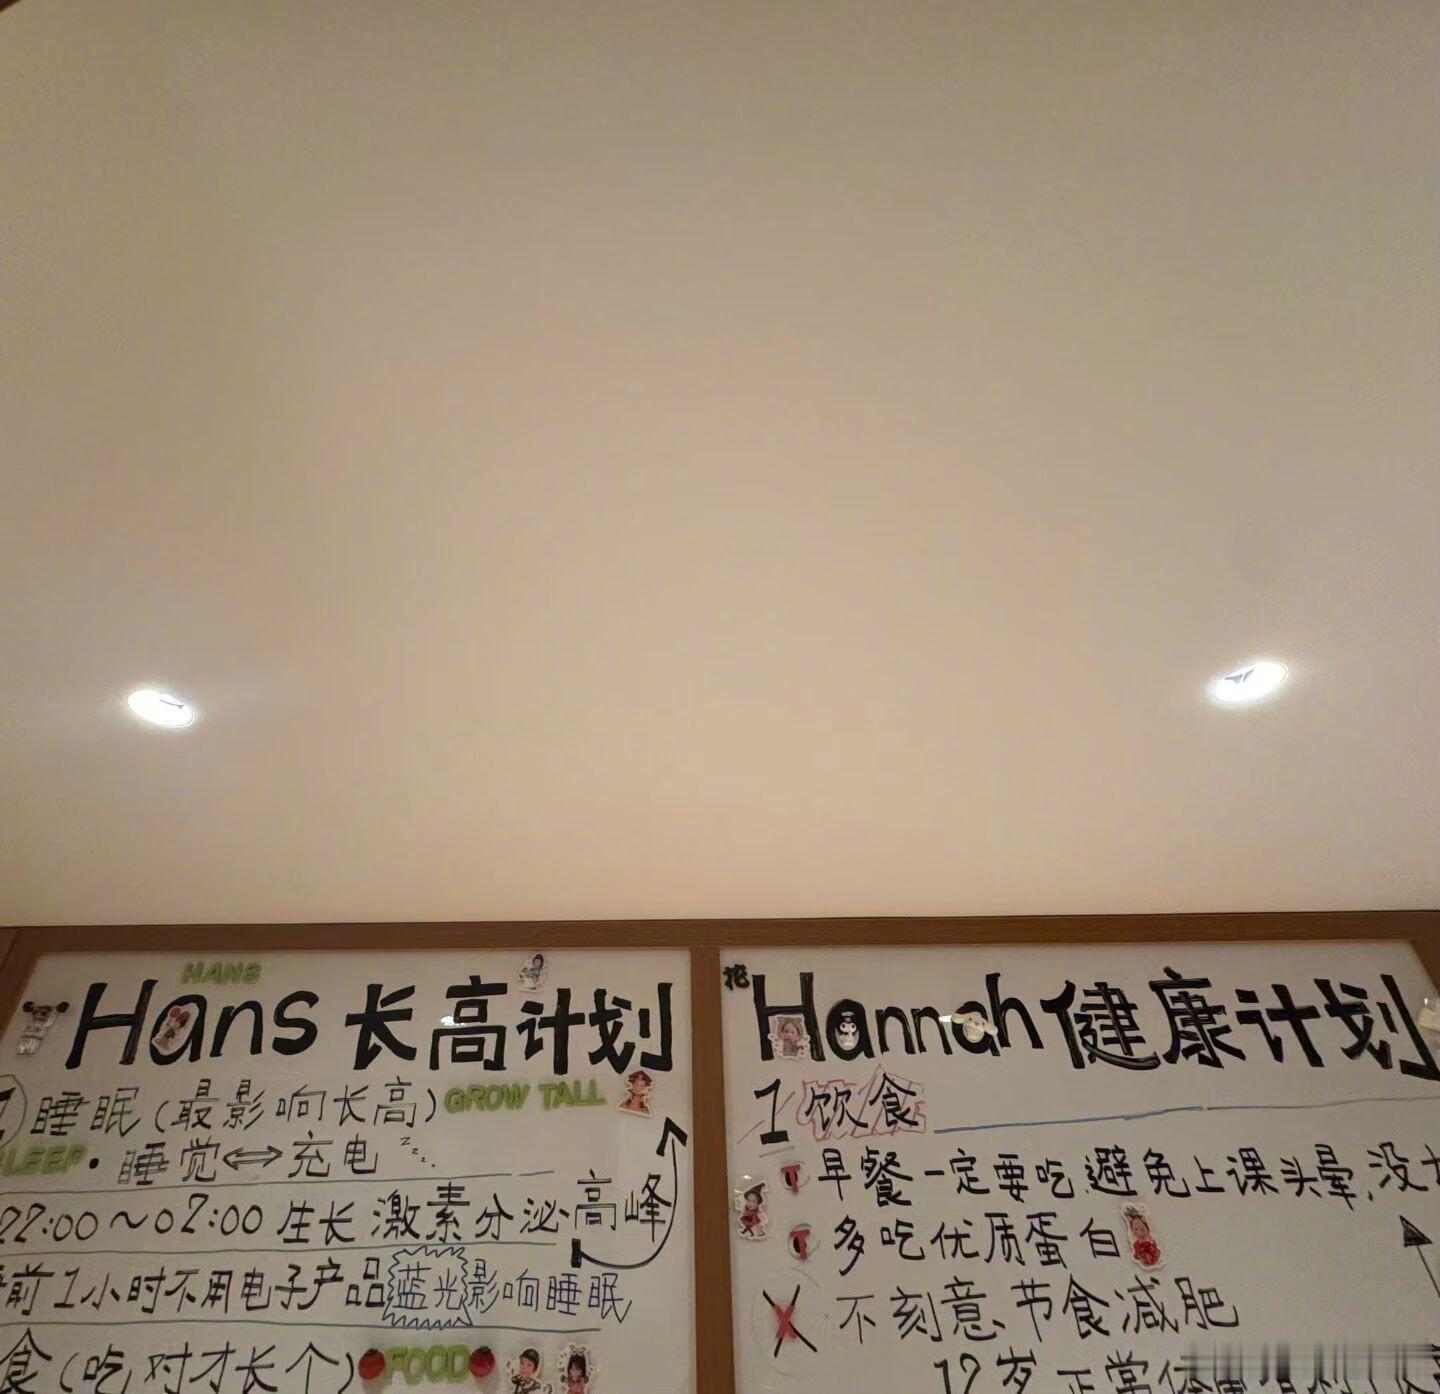 HANS
Hans 长高计划
睡眠(最影响长高) GROW TALL
SLEEP • 睡觉⇔充电 zzz
22:00~02:00 生长激素分泌高峰
前1小时不用电子产品蓝光影响睡眠
食(吃对才长个) FOOD
Hannah 健康计划
1 饮食
早餐一定要吃,避免上课头晕,没
多吃优质蛋白
X 不刻意、节食减肥
12岁 正常体重